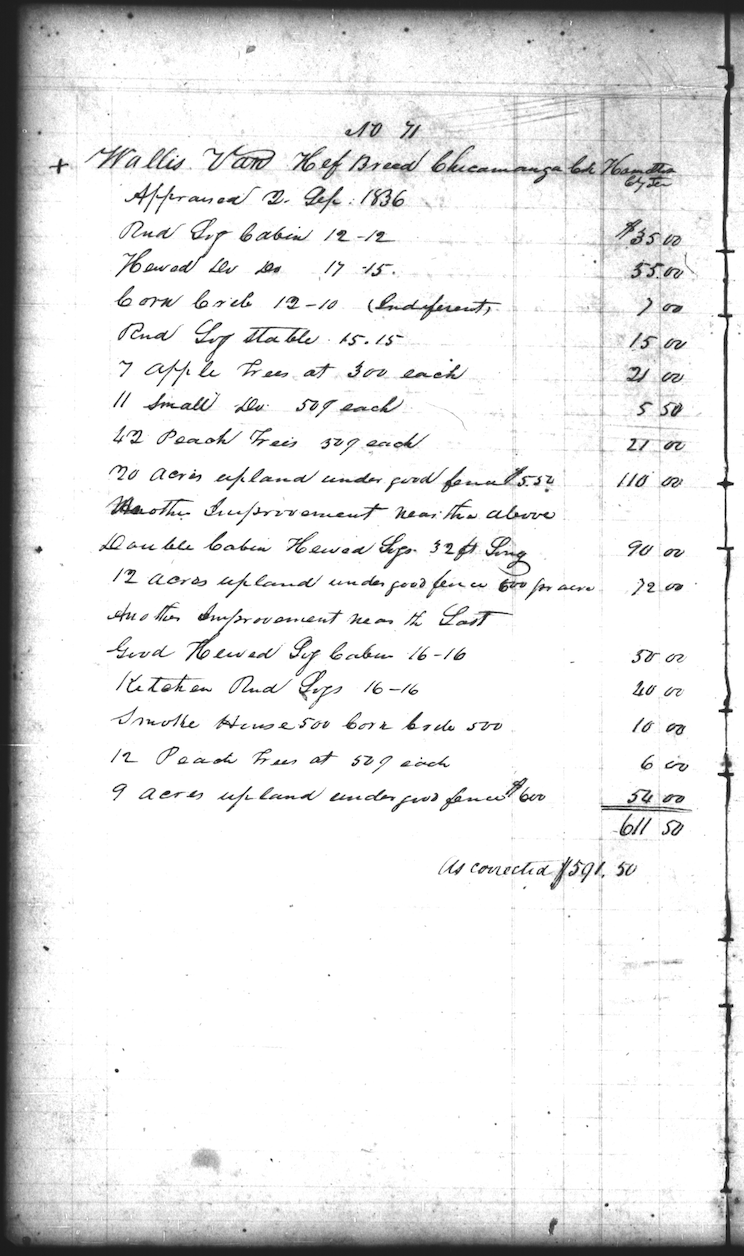 No 71
+ Wallis Van Hef Breed Chicamauga Ck Hamelto
Cty Ten
Appraised 2. Sep. 1836
Rnd Log Cabin 12-12 $35 00
Hewed Do Do 17-15. 55.00
Corn Crib 12-10 (Indiferent) 7 00
Rnd Log Stable 15.15 15 00
7 Apple Trees at 300 each 21 00
11 Small Do 50¢ each 5 50
42 Peach Trees 50¢ each 21 00
20 Acres upland under good fence $5.50 110 00
Another Improvement near the above
Double Cabin Hewed Logs 32 ft Long 90 00
12 acres upland under good fence 600 per acre 72 00
Another Improvement near the Last
Good Hewed Log Cabin 16-16 50 00
Kitchen Rnd Logs 16-16 40 00
Smoke House 500 Corn Crib 500 10 00
12 Peach Trees at 50¢ each 6 00
9 acres upland under good fence $600 54 00
611 50
As corrected $591.50